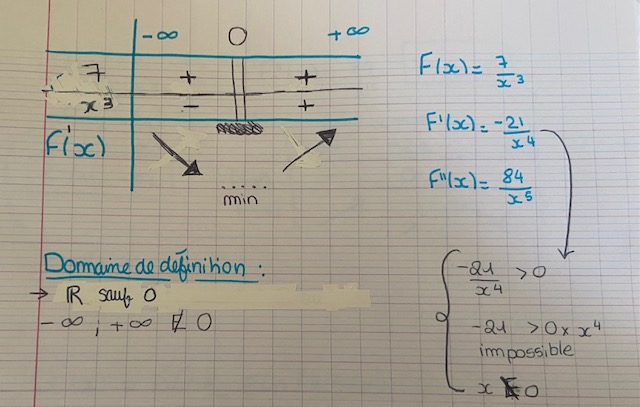 -∞ 0 +∞
7 + +
x³ - +
F'(x)
.....
min
F(x) = 7/x³
F'(x) = -21/x⁴
F''(x) = 84/x⁵
Domaine de définition :
→ ℝ sauf 0
-∞ ; +∞ ∉ 0
-21/x⁴ > 0
-21 > 0 × x⁴
impossible
x 0